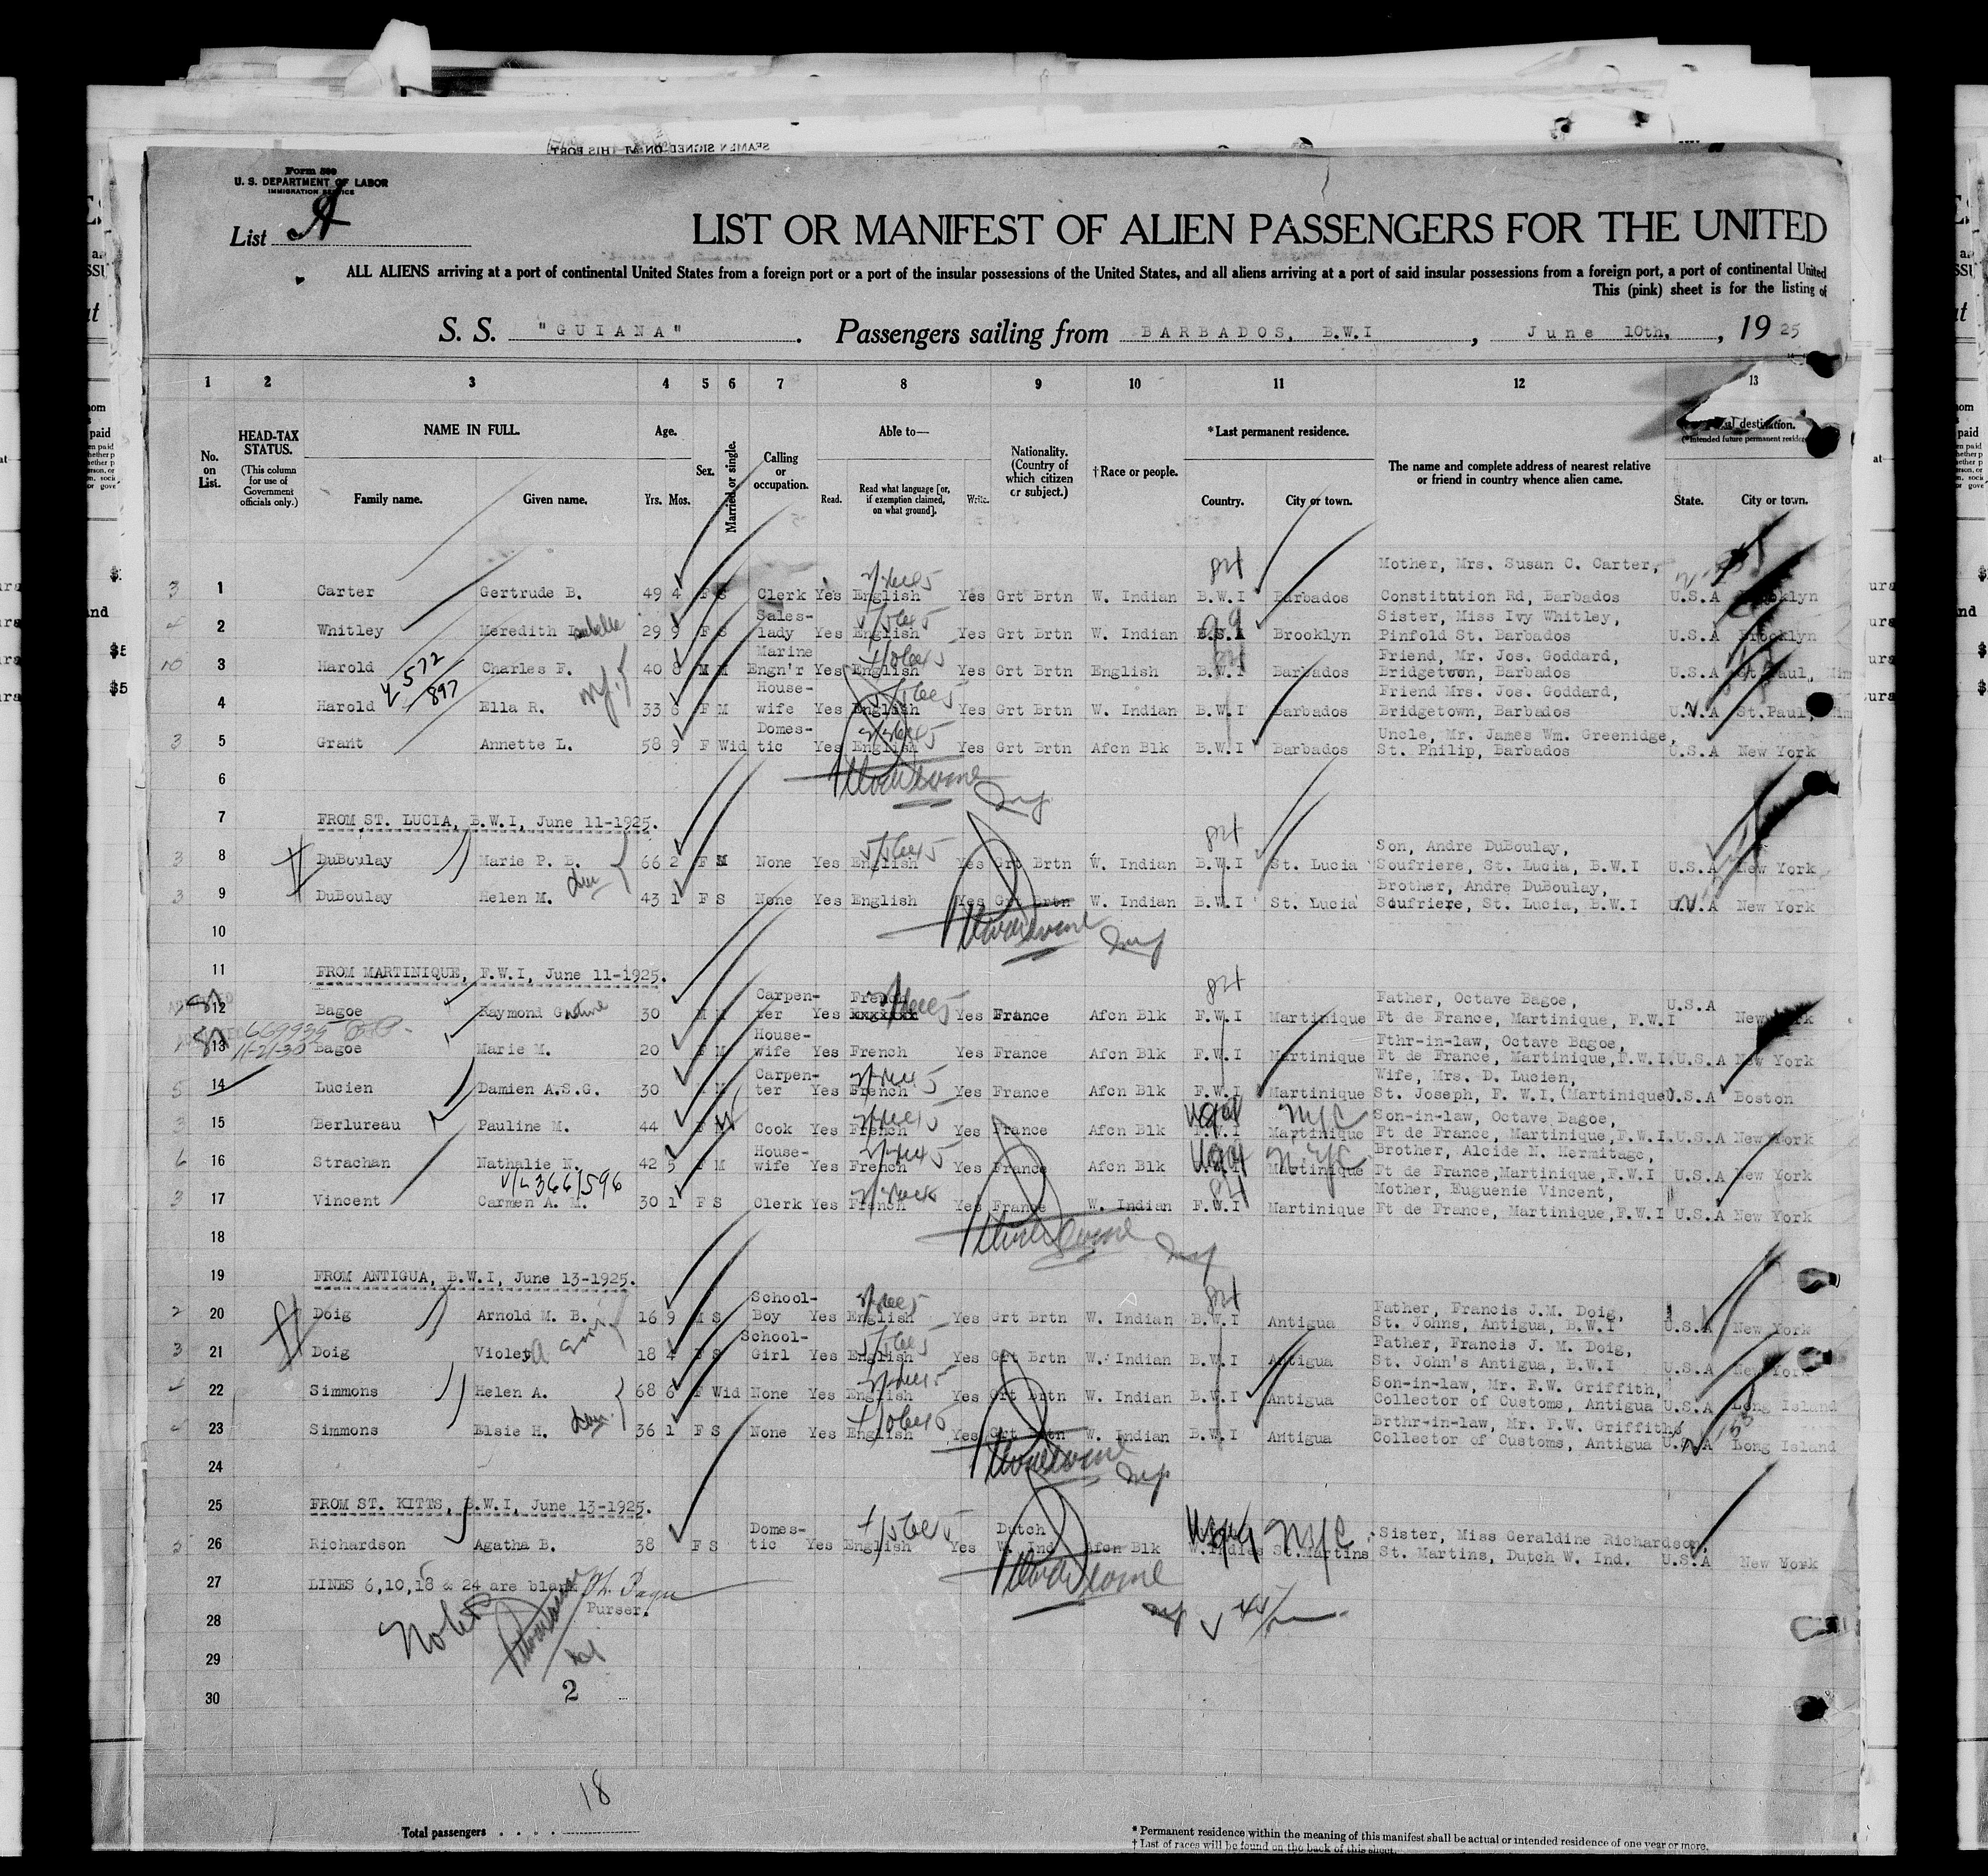 SEAMEN SIGNED ON AT THIS PORT
Form 500
U. S. DEPARTMENT OF LABOR
IMMIGRATION SERVICE
List A
LIST OR MANIFEST OF ALIEN PASSENGERS FOR THE UNITED
ALL ALIENS arriving at a port of continental United States from a foreign port or a port of the insular possessions of the United States, and all aliens arriving at a port of said insular possessions from a foreign port, a port of continental United
This (pink) sheet is for the listing of
S. S. "GUIANA". Passengers sailing from BARBADOS, B.W.I, June 10th, , 1925
1 2 3 4 5 6 7 8 9 10 11 12 13
No. on List.
HEAD-TAX STATUS. (This column for use of Government officials only.)
NAME IN FULL. Family name. Given name.
Age. Yrs. Mos.
Sex.
Married or single.
Calling or occupation.
Able to— Read. Read what language [or, if exemption claimed, on what ground]. Write.
Nationality. (Country of which citizen or subject.)
†Race or people.
*Last permanent residence. Country. City or town.
The name and complete address of nearest relative or friend in country whence alien came.
destination. (*Intended future permanent residence) State. City or town.
3 1 Carter Gertrude B. 49 4 F S Clerk Yes English Yes Grt Brtn W. Indian B.W.I Barbados Mother, Mrs. Susan C. Carter, Constitution Rd, Barbados U.S.A Brooklyn
2 Whitley Meredith 29 9 F S Sales-lady Yes English Yes Grt Brtn W. Indian Brooklyn Sister, Miss Ivy Whitley, Pinfold St. Barbados U.S.A Brooklyn
10 3 Harold Charles F. 40 8 M M Marine Engn'r Yes English Yes Grt Brtn English B.W.I Barbados Friend, Mr. Jos. Goddard, Bridgetown, Barbados U.S.A St Paul, Min
572/897
4 Harold Ella R. 33 6 F M House-wife Yes English Yes Grt Brtn W. Indian B.W.I Barbados Friend Mrs. Jos. Goddard, Bridgetown, Barbados U.S.A St.Paul, Min
3 5 Grant Annette L. 58 9 F Wid Domes-tic Yes English Yes Grt Brtn Afcn Blk B.W.I Barbados Uncle, Mr. James Wm. Greenidge, St. Philip, Barbados U.S.A New York
6
7 FROM ST. LUCIA, B.W.I, June 11-1925.
84
3 8 DuBoulay Marie P. B. 66 2 F M None Yes English Yes Grt Brtn W. Indian B.W.I St. Lucia Son, Andre DuBoulay, Soufriere, St. Lucia, B.W.I U.S.A New York
3 9 DuBoulay Helen M. 43 1 F S None Yes English Yes Grt Brtn W. Indian B.W.I St. Lucia Brother, Andre DuBoulay, Soufriere, St. Lucia, B.W.I U.S.A New York
10
11 FROM MARTINIQUE, F.W.I, June 11-1925.
84
12 Bagoe Raymond 30 M M Carpen-ter Yes French Yes France Afcn Blk F.W.I Martinique Father, Octave Bagoe, Ft de France, Martinique, F.W.I U.S.A New York
669935
11-21-30
13 Bagoe Marie M. 20 F M House-wife Yes French Yes France Afcn Blk F.W.I Martinique Fthr-in-law, Octave Bagoe, Ft de France, Martinique,F.W.I.U.S.A New York
5 14 Lucien Damien A.S.G. 30 M M Carpen-ter Yes French Yes France Afcn Blk F.W.I Martinique Wife, Mrs. D. Lucien, St. Joseph, F. W.I.(Martinique) U.S.A Boston
3 15 Berlureau Pauline M. 44 F Cook Yes French Yes France Afcn Blk Martinique NYC Son-in-law, Octave Bagoe, Ft de France, Martinique,F.W.I.U.S.A New York
6 16 Strachan Nathalie N. 42 5 F M House-wife Yes French Yes France Afcn Blk Martinique N.Y.C Brother, Alcide N. Hermitage, Ft de France,Martinique,F.W.I U.S.A New York
V/L 366/596
3 17 Vincent Carmen A. M. 30 1 F S Clerk Yes French Yes France W. Indian F.W.I Martinique Mother, Euguenie Vincent, Ft de France, Martinique,F.W.I U.S.A New York
18
19 FROM ANTIGUA, B.W.I, June 13-1925.
84
2 20 Doig Arnold M. B. 16 9 M S School-Boy Yes English Yes Grt Brtn W. Indian B.W.I Antigua Father, Francis J.M. Doig, St. Johns, Antigua, B.W.I U.S.A New York
3 21 Doig Violet A 18 4 F S School-Girl Yes English Yes Grt Brtn W. Indian B.W.I Antigua Father, Francis J. M. Doig, St. John's Antigua, B.W.I U.S.A New York
22 Simmons Helen A. 68 6 F Wid None Yes English Yes Grt Brtn W. Indian B.W.I Antigua Son-in-law, Mr. F.W. Griffith, Collector of Customs, Antigua U.S.A Long Island
23 Simmons Elsie H. 36 1 F S None Yes English Yes Grt Brtn W. Indian B.W.I Antigua Brthr-in-law, Mr. F.W. Griffiths Collector of Customs, Antigua U.S.A Long Island
24
25 FROM ST. KITTS, B.W.I, June 13-1925.
26 Richardson Agatha B. 38 F S Domes-tic Yes English Yes Dutch W. Ind Afcn Blk W.Indies St.Martins NYC Sister, Miss Geraldine Richardson, St. Martins, Dutch W. Ind. U.S.A New York
27 LINES 6,10,18 & 24 are blank
Purser.
28
29
30
2
18
Total passengers . . . .
* Permanent residence within the meaning of this manifest shall be actual or intended residence of one year or more.
† List of races will be found on the back of this sheet.